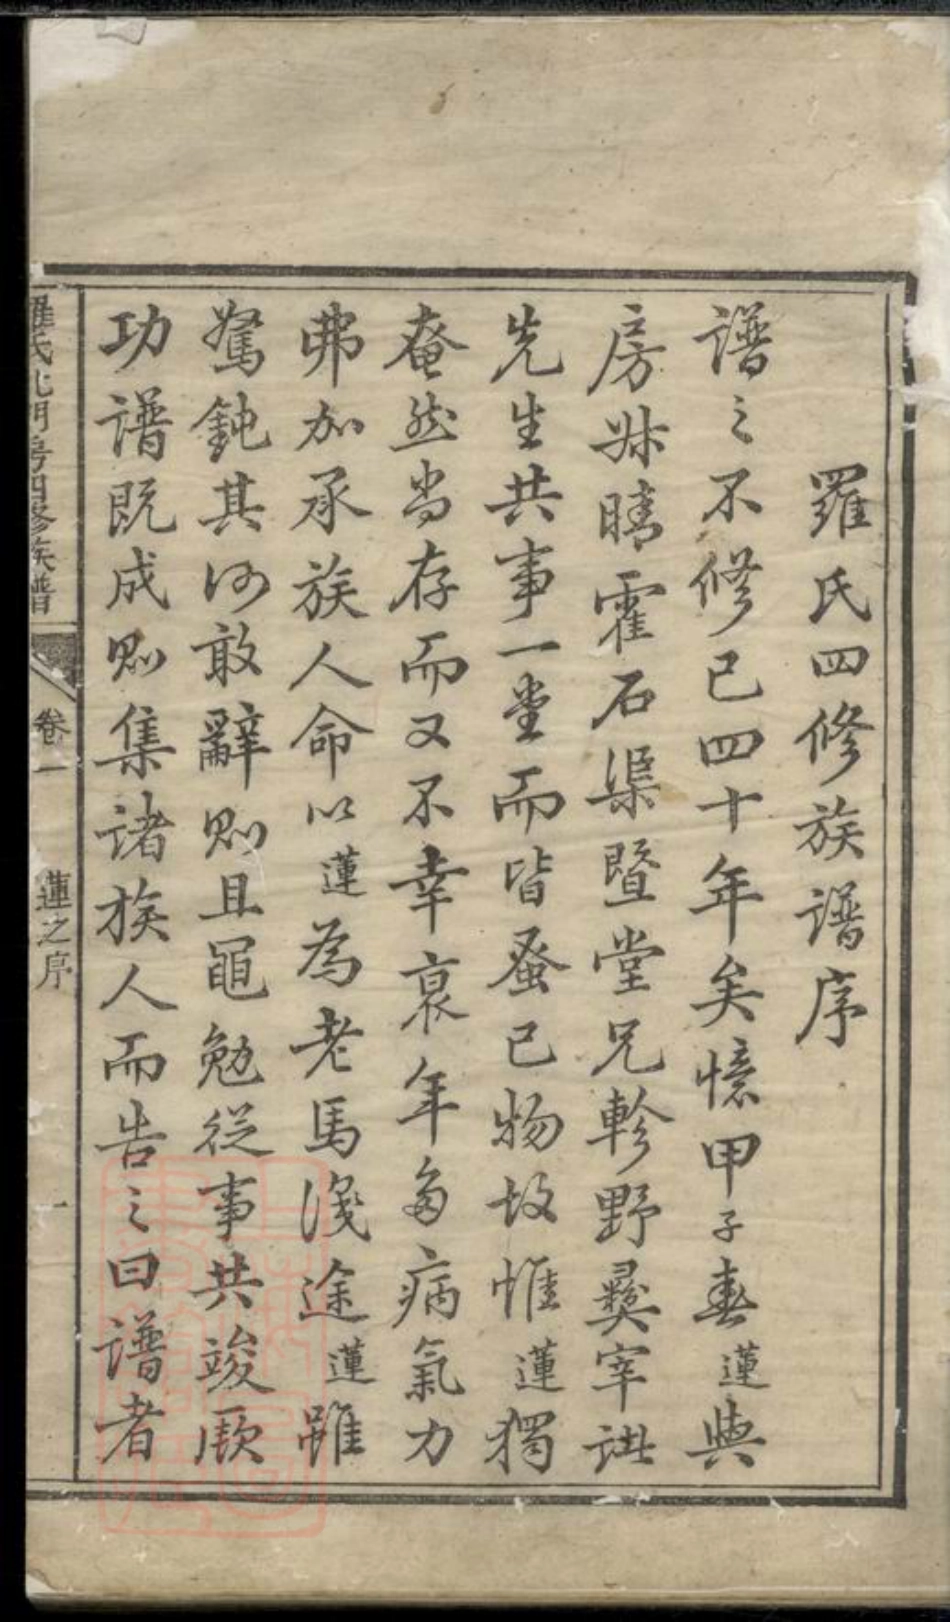 羅氏四修族譜序
譜之不修已四十年矣憶甲子春蓮與
房叔晴霍石渠暨堂兄軫野彛宰諸
先生共事一堂而皆蚤已物故惟蓮獨
奄然尚存而又不幸衰年多病氣力
弗加承族人命以蓮為老馬識途蓮雖
駑鈍其何敢辭則且黽勉從事共竣厥
功譜既成則集諸族人而告之曰譜者
羅氏北門房四修族譜 卷一 蓮之序 一